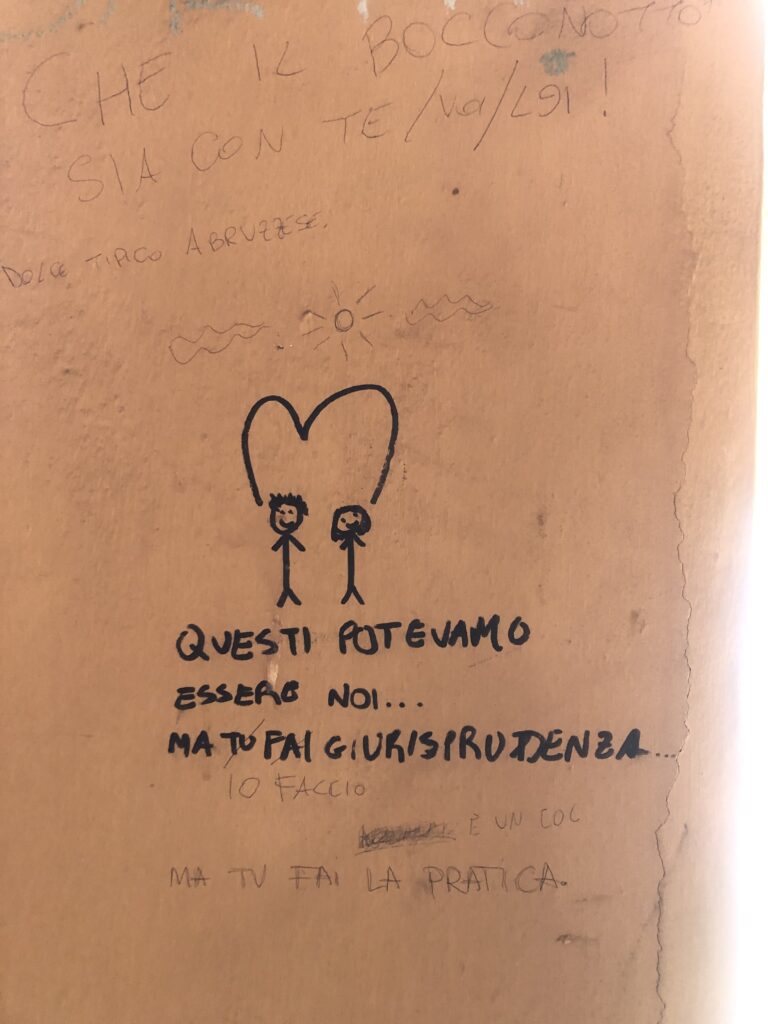 CHE IL BOCCONOTTO
SIA CON TE/VOI/LEI!
DOLCE TIPICO ABRUZZESE.
QUESTI POTEVAMO
ESSERE NOI...
MA TU FAI GIURISPRUDENZA...
IO FACCIO
E UN
MA TU FAI LA PRATICA.